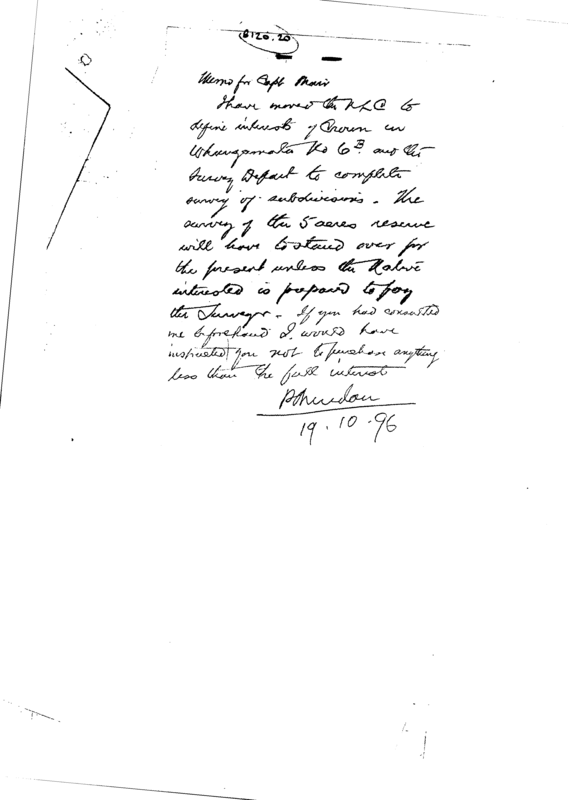 6120.20
Memo for Capt Mair
I have moved the NLC to
define interests of Crown in
Whangamata No 6B and the
Survey Depart to complete
survey of subdivisions. The
survey of the 5 acres reserve
will have to stand over for
the present unless the Native
interested is prepared to pay
the Surveyor. If you had consulted
me beforehand I would have
instructed you not to purchase anything
less than the full interest
PSheridan
19.10.96